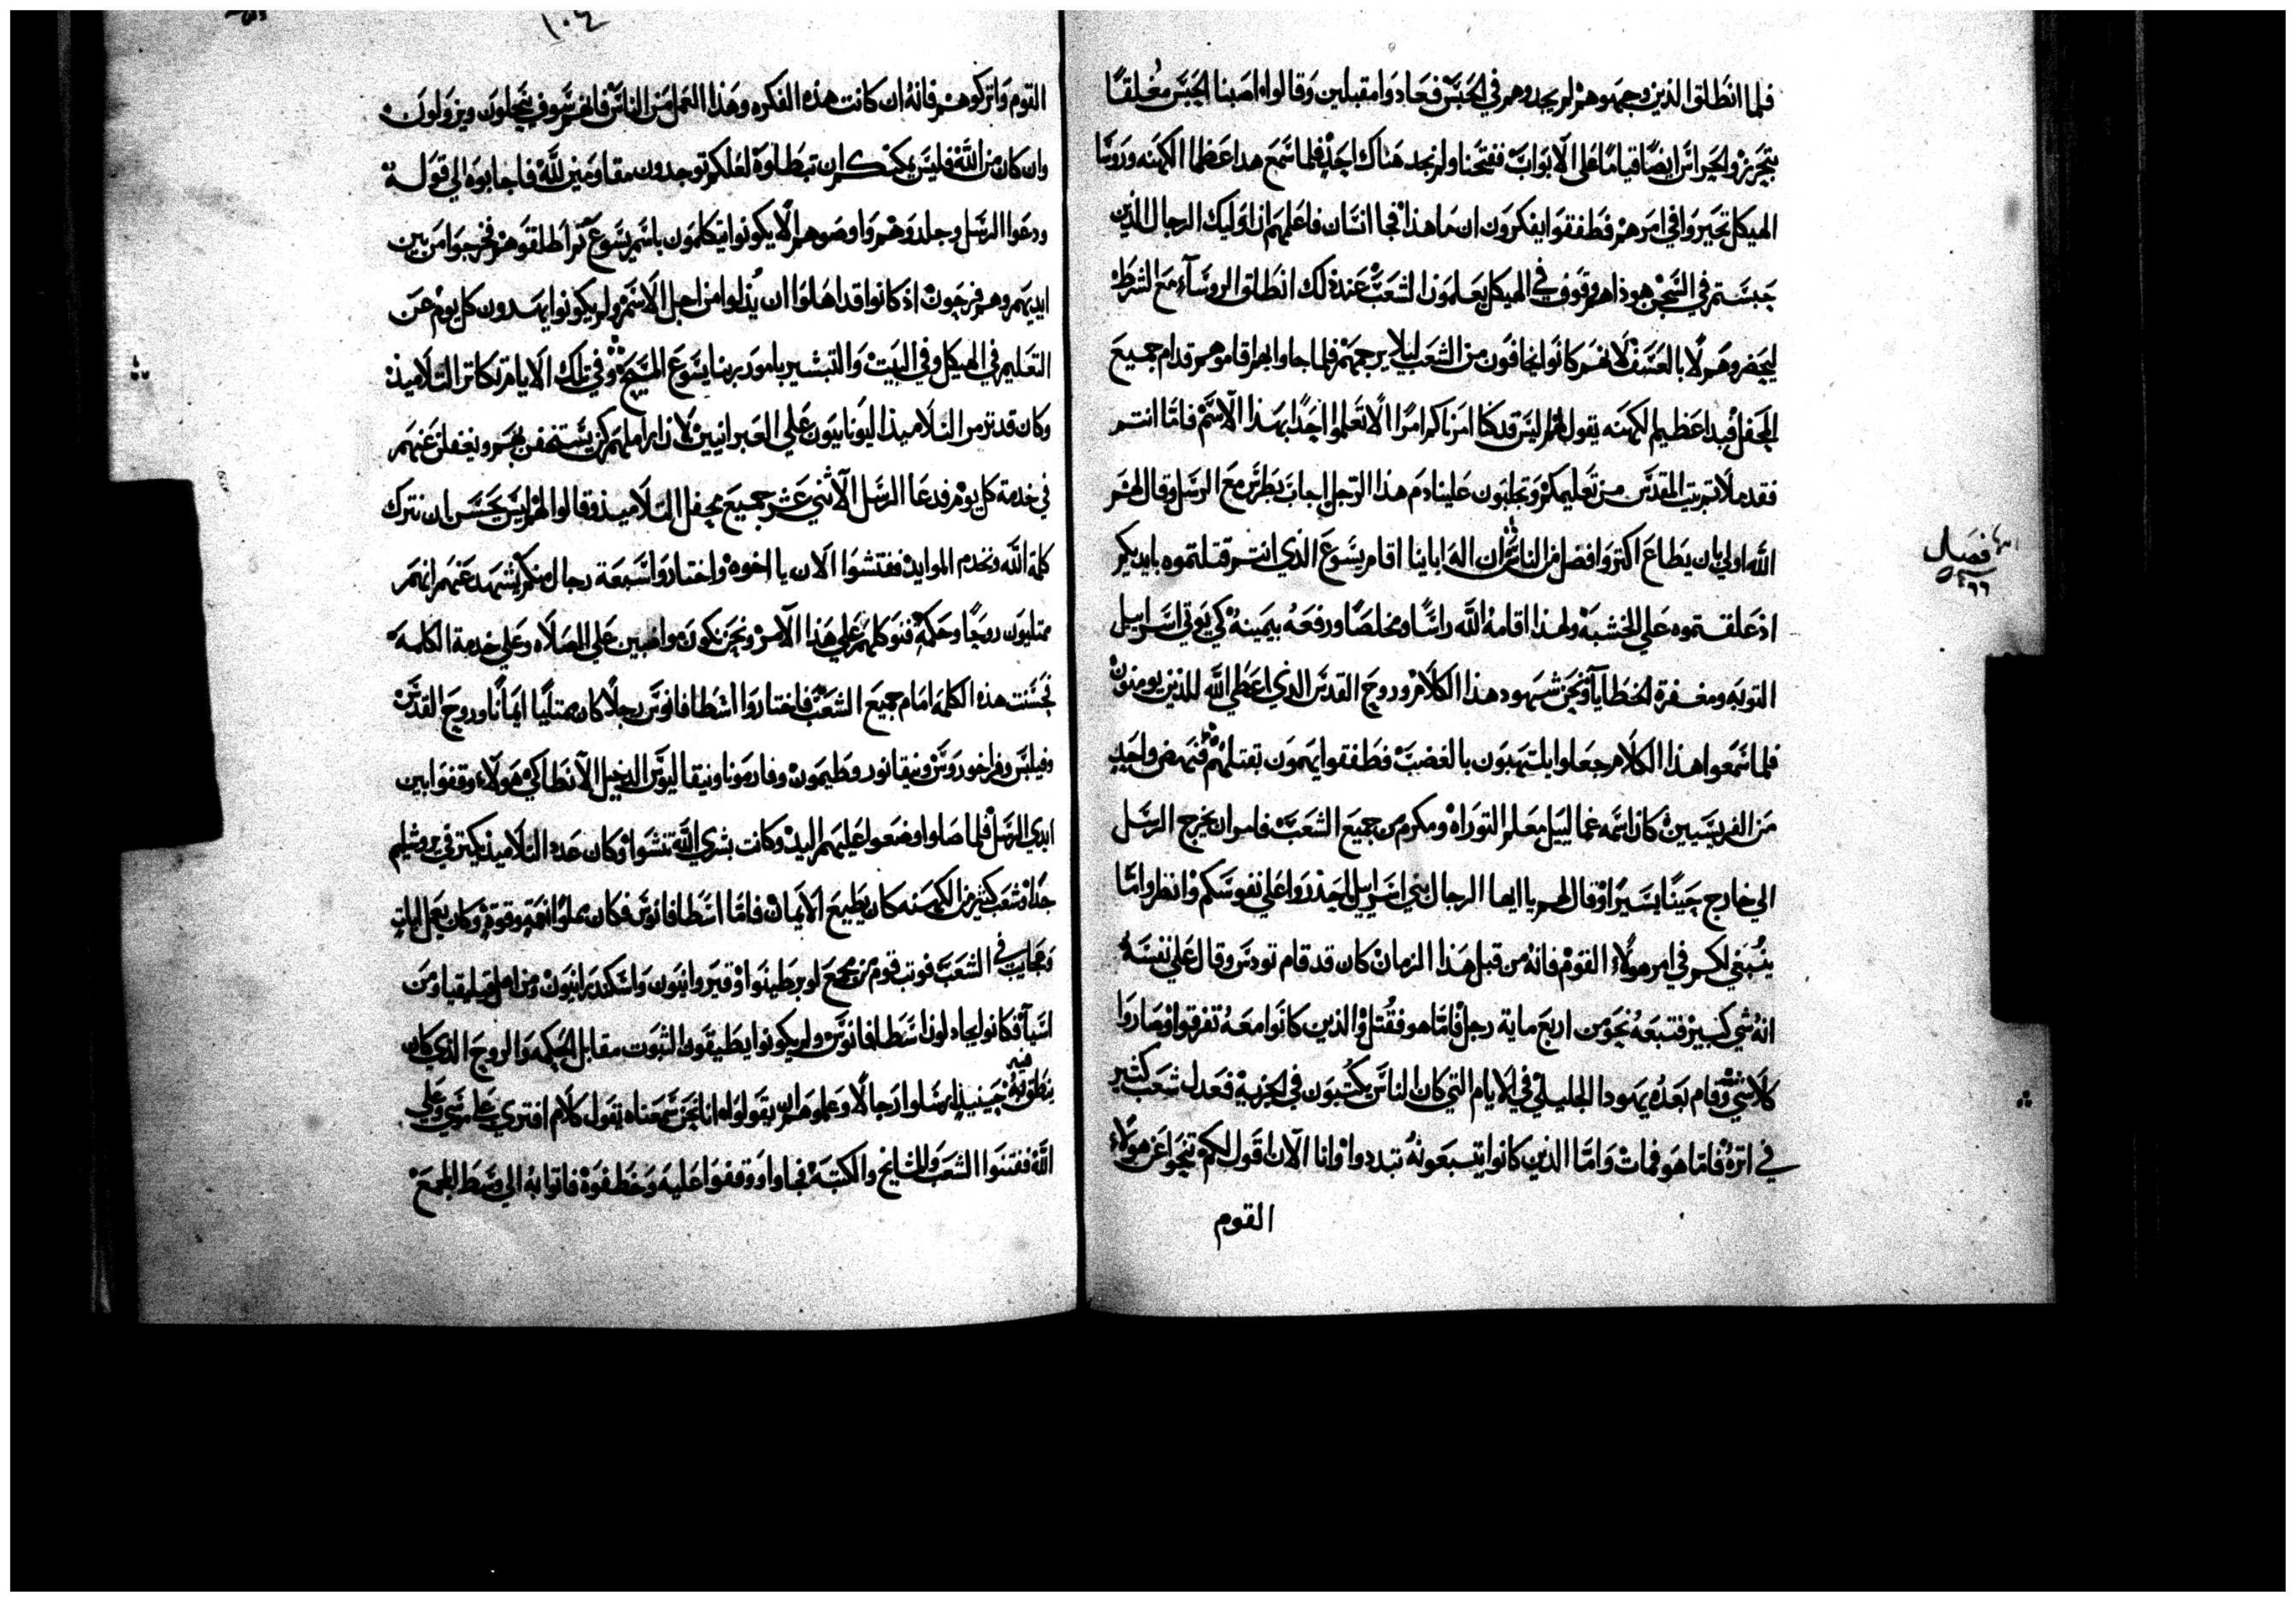 فلما انطلق الذين وجهوهم لم يجدوهم في الحبس فعادوا مقبلين وقالوا اصبنا الحبس مغلقا
بتحريز والحراس ايضا قياما على الابواب ففتحنا ولم نجد هناك احد فلما سمع هدا عظما الكهنه وروسا
الهيكل تحيروا في امرهم فطفقوا يفكرون ان ما هذا فجا انسان فاعلمهم ان اوليك الرجال الذين
حبستم في السجن هوذا هم وقوف في الهيكل يعلمون الشعب عند ذلك انطلق الروساء مع الشرط
ليحضروهم لا بالعسف لانهم كانوا يخافون من الشعب ليلا يرجمهم فلما جاوا بهم اقاموهم قدام جميع
المحفل فبدا عظيم الكهنه يقول لهم اليس قد كنا امرناكم امرا الا تعلموا احدا بهذا الاسم فاما انتم
فقد ملاتم بيت المقدس من تعليمكم وتجلبون علينا دم هذا الرجل اجاب بطرس مع الرسل وقال لهم
الله اولي بان يطاع اكتر وافضل من الناس ان اله اباينا اقام يسوع الذي انتم قتلتموه بايديكم
اذ علقتموه على الخشبه ولهذا اقامه الله راسا ومخلصا ورفعه بيمينه كي يوتي اسراييل
التوبه ومغفرة الخطايا ونحن شهود هذا الكلام وروح القدس الذي اعطي الله للذين يومنون
فلما سمعوا هذا الكلام جعلوا يلتهبون بالغضب فطفقوا يهمون بقتلهم فنهض واحد
من الفريسيين كان اسمه غمالييل معلم التوراه ومكرم من جميع الشعب فامر ان يخرج الرسل
الي خارج حينا يسيرا وقال لهم يا ايها الرجال بني اسراييل احذروا على نفوسكم وانظروا ما
ينبغي لكم في امر هولاء القوم فانه من قبل هذا الزمان كان قد قام تودس وقال على نفسه
انه شي كبير فتبعه نحو من اربع ماية رجل فاما هو فقتل والذين كانوا معه تفرقوا وصاروا
كلا شي وقام بعده يهودا الجليلي في الايام التي كان الناس يكتبون في الجزيه فعدل شعب كثير
في اثره فاما هو فمات واما الذين كانوا يتبعونه تبددوا وانا الان اقول لكم تنحوا عن هولاء
القوم
فصل
١٠٤
القوم واتركوهم فانه ان كانت هذه الفكره وهذا العمل من الناس فانهم سوف ينحلون ويزولون
وان كان من الله فليس يمكنكم ان تبطلوه لعلكم توجدون مقاومين لله فاجابوه الي قوله
ودعوا الرسل وجلدوهم واوصوهم الا يكونوا يتكلمون باسم يسوع ثم اطلقوهم فخرجوا من بين
ايديهم وهم فرحون اذ كانوا قد اهلوا ان يذلوا من اجل الاسم ولم يكونوا يهدون كل يوم عن
التعليم في الهيكل وفي البيت والتبشير بامور ربنا يسوع المسيح وفي تلك الايام تكاثر التلاميذ
وكان قد تزمر التلاميذ اليونانيون على العبرانيين لان اراملهم كن يستخفن بهم ويغفلن عنهم
في خدمة كل يوم فدعا الرسل الاثني عشر جميع محفل التلاميذ وقالوا لهم ليس يحسن ان نترك
كلمة الله ونخدم الموايد ففتشوا الان يا اخوه واختاروا سبعة رجال منكم يشهد عنهم انهم
ممتليون روحا وحكمه فنوكلهم علي هذا الامر ونحن نكون مواظبين علي الصلاه وعلي خدمة الكلمه
فحسنت هذه الكلمه امام جميع الشعب فاختاروا اسطافانوس رجلا كان ممتليا ايمانا وروح القدس
وفيلبس وفراخوروس ونيقانور وطيمون وفارمونا ونيقاليوس الدخيل الانطاكي هولاء وقفوا بين
ايدي الرسل فلما صلوا وضعوا عليهم اليد وكانت بشري الله تنشوا وكان عدد التلاميذ يكتر في يروشليم
جدا وشعب كثير من الكهنه كان يطيع الايمان فاما اسطافانوس فكان مملوا نعمه وقوه وكان يعمل ايات
وعجايب في الشعب فوتب قوم من مجمع لوبرطينوا وقيروانيون واسكندرانيون ومن اهل قيليقيا ومن
اسيا فكانوا يجادلون اسطافانوس ولم يكونوا يطيقون الثبوت مقابل الحكمه والروح الذي كان
ينطق فيه حينيذ ارسلوا رجالا وعلموهم ان يقولوا انا نحن سمعناه يقول كلام افتري على موسي وعلي
الله ففتنوا الشعب والمشايخ والكتبه فجاوا ووقفوا عليه وخطفوه فاتوا به الي وسط المجمع